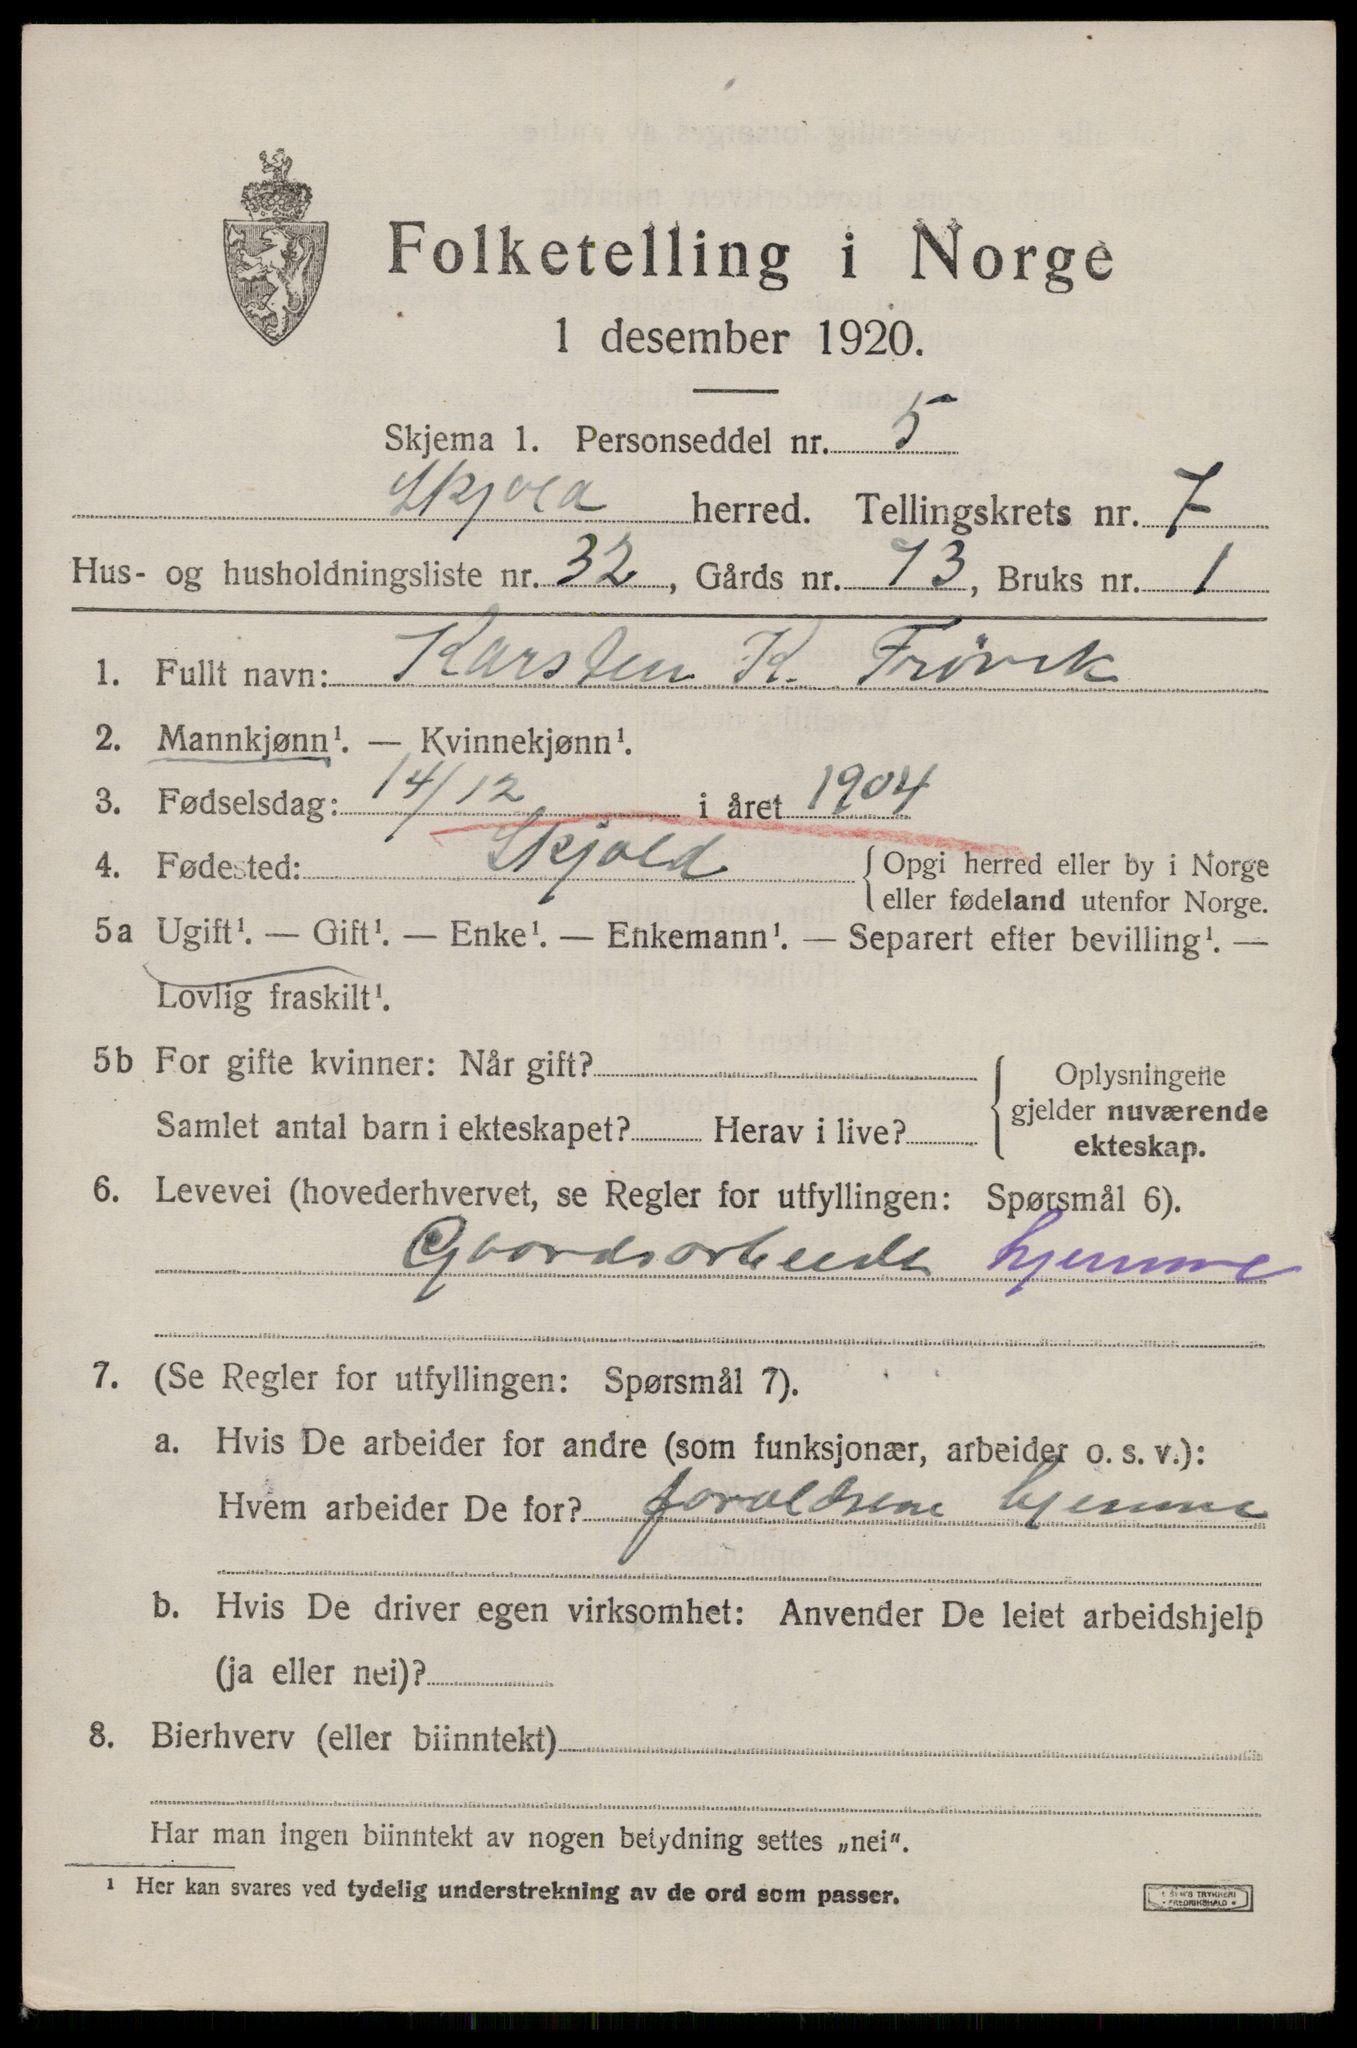 Folketelling i Norge
1 desember 1920.
Skjema 1. Personseddel nr. 5
Skjold herred. Tellingskrets nr. 7
Hus- og husholdningsliste nr. 32, Gårds nr. 73, Bruks nr. 1
1. Fullt navn: Karsten K. Frøvik
2. Mannkjønn¹. — Kvinnekjønn¹.
3. Fødselsdag: 14/12 i året 1904
4. Fødested: Skjold { Opgi herred eller by i Norge
eller fødeland utenfor Norge.
5a Ugift¹. — Gift¹. — Enke¹. — Enkemann¹. — Separert efter bevilling¹. —
Lovlig fraskilt¹.
5b For gifte kvinner: Når gift?
Samlet antal barn i ekteskapet? Herav i live?
{ Oplysningene
gjelder nuværende
ekteskap.
6. Levevei (hovederhvervet, se Regler for utfyllingen: Spørsmål 6).
Gaardsarbeide hjemme
7. (Se Regler for utfyllingen: Spørsmål 7).
a. Hvis De arbeider for andre (som funksjonær, arbeider o. s. v.):
Hvem arbeider De for? foraldrene hjemme
b. Hvis De driver egen virksomhet: Anvender De leiet arbeidshjelp
(ja eller nei)?
8. Bierhverv (eller biinntekt)
Har man ingen biinntekt av nogen betydning settes „nei“.
¹ Her kan svares ved tydelig understrekning av de ord som passer.
TRYKKERI
FREDRIKSHALD